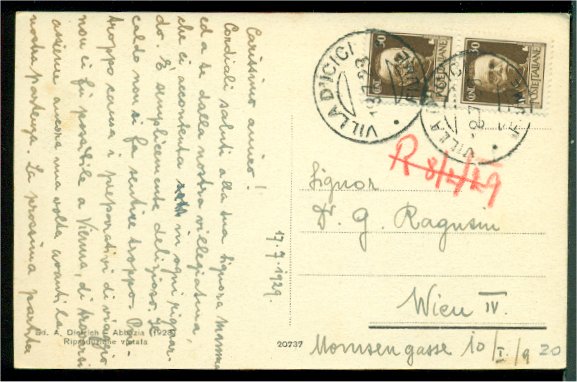 Carissimo amico!
Cordiali saluti alla sua signora mamma
ed a te dalla nostra villeggiatura,
che ci accontenta in ogni riguar-
do. È semplicemente delizioso. Il
caldo non si fa sentire troppo. Pur-
troppo causa i preparativi di viaggio
non ci fu possibile a Vienna, di trovarsi
assieme ancora una volta avanti la
nostra partenza. La prossima
Ed. A. Dietrich - Abbazia (1928)
Riproduzione vietata
17.7.1929.
20737
50
50
POSTE ITALIANE
VILLA D'ICICI
VILLA D'ICICI
R 8/4/29
Signor
Dr. G. Ragusin
Wien IV.
Momsengasse 10/I./9
20